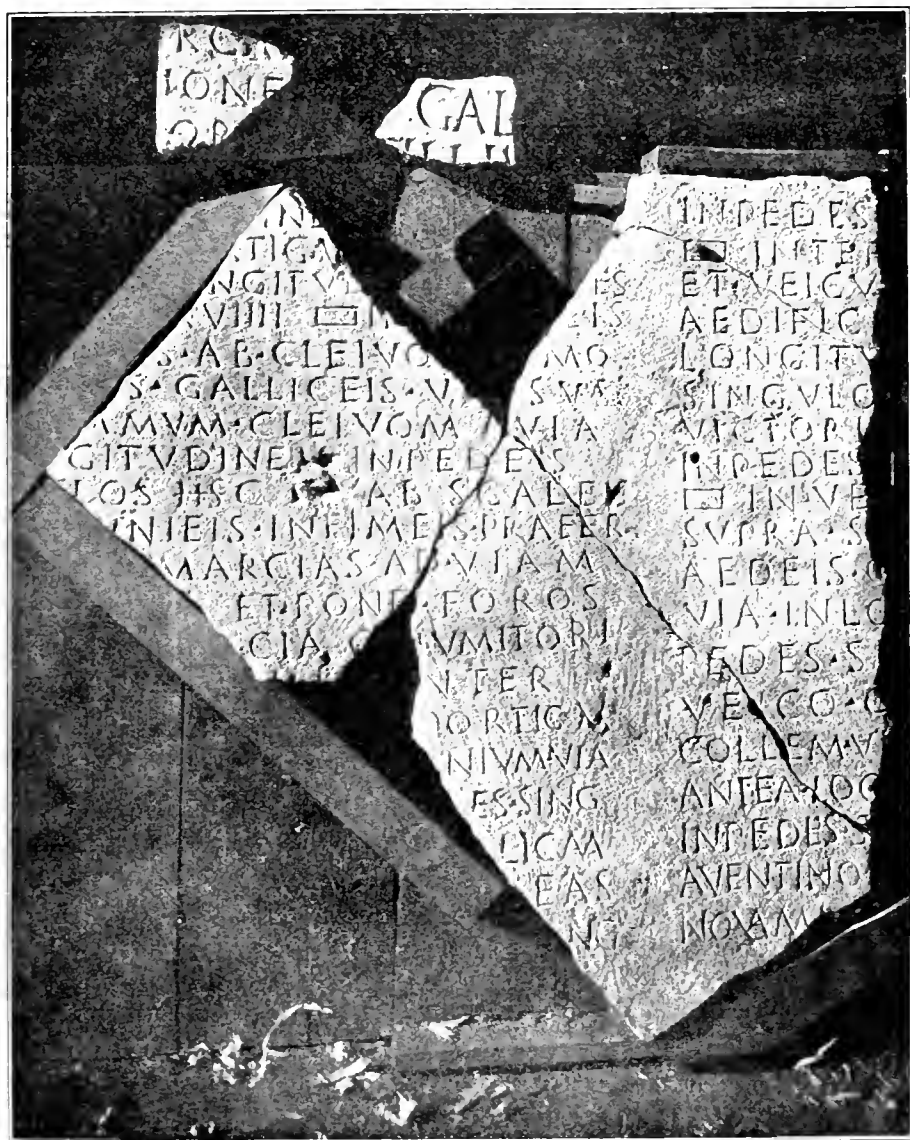 IONE
GAL
IN
TIGA
NGITV
ES
VIIII
EIS
S·AB·CLEIVO
MO
S·GALLICEIS·V
SVM
MVM·CLEIVOM
VIA
GITVDINEM INPEDES
LOS HSC AB·SCALEI
INIEIS·INFIMEIS·PRAEFER
MARCIAS·AD·VIAM
ET·PONE·FOROS
CIA
NVMITORI
NTER
PORTICM
NIVM·VIA
ES·SING
LICAM
EAS
NG
INPEDES
INTER
ET·VEICV
AEDIFIC
LONGITV
SINGVLO
VICTORI
INPEDES
IN·VE
SVPRA·S
AEDEIS
VIA·INLO
PEDES·S
VEICO
COLLEM·V
ANTEA·LOC
INPEDES
AVENTINO
NOVAM